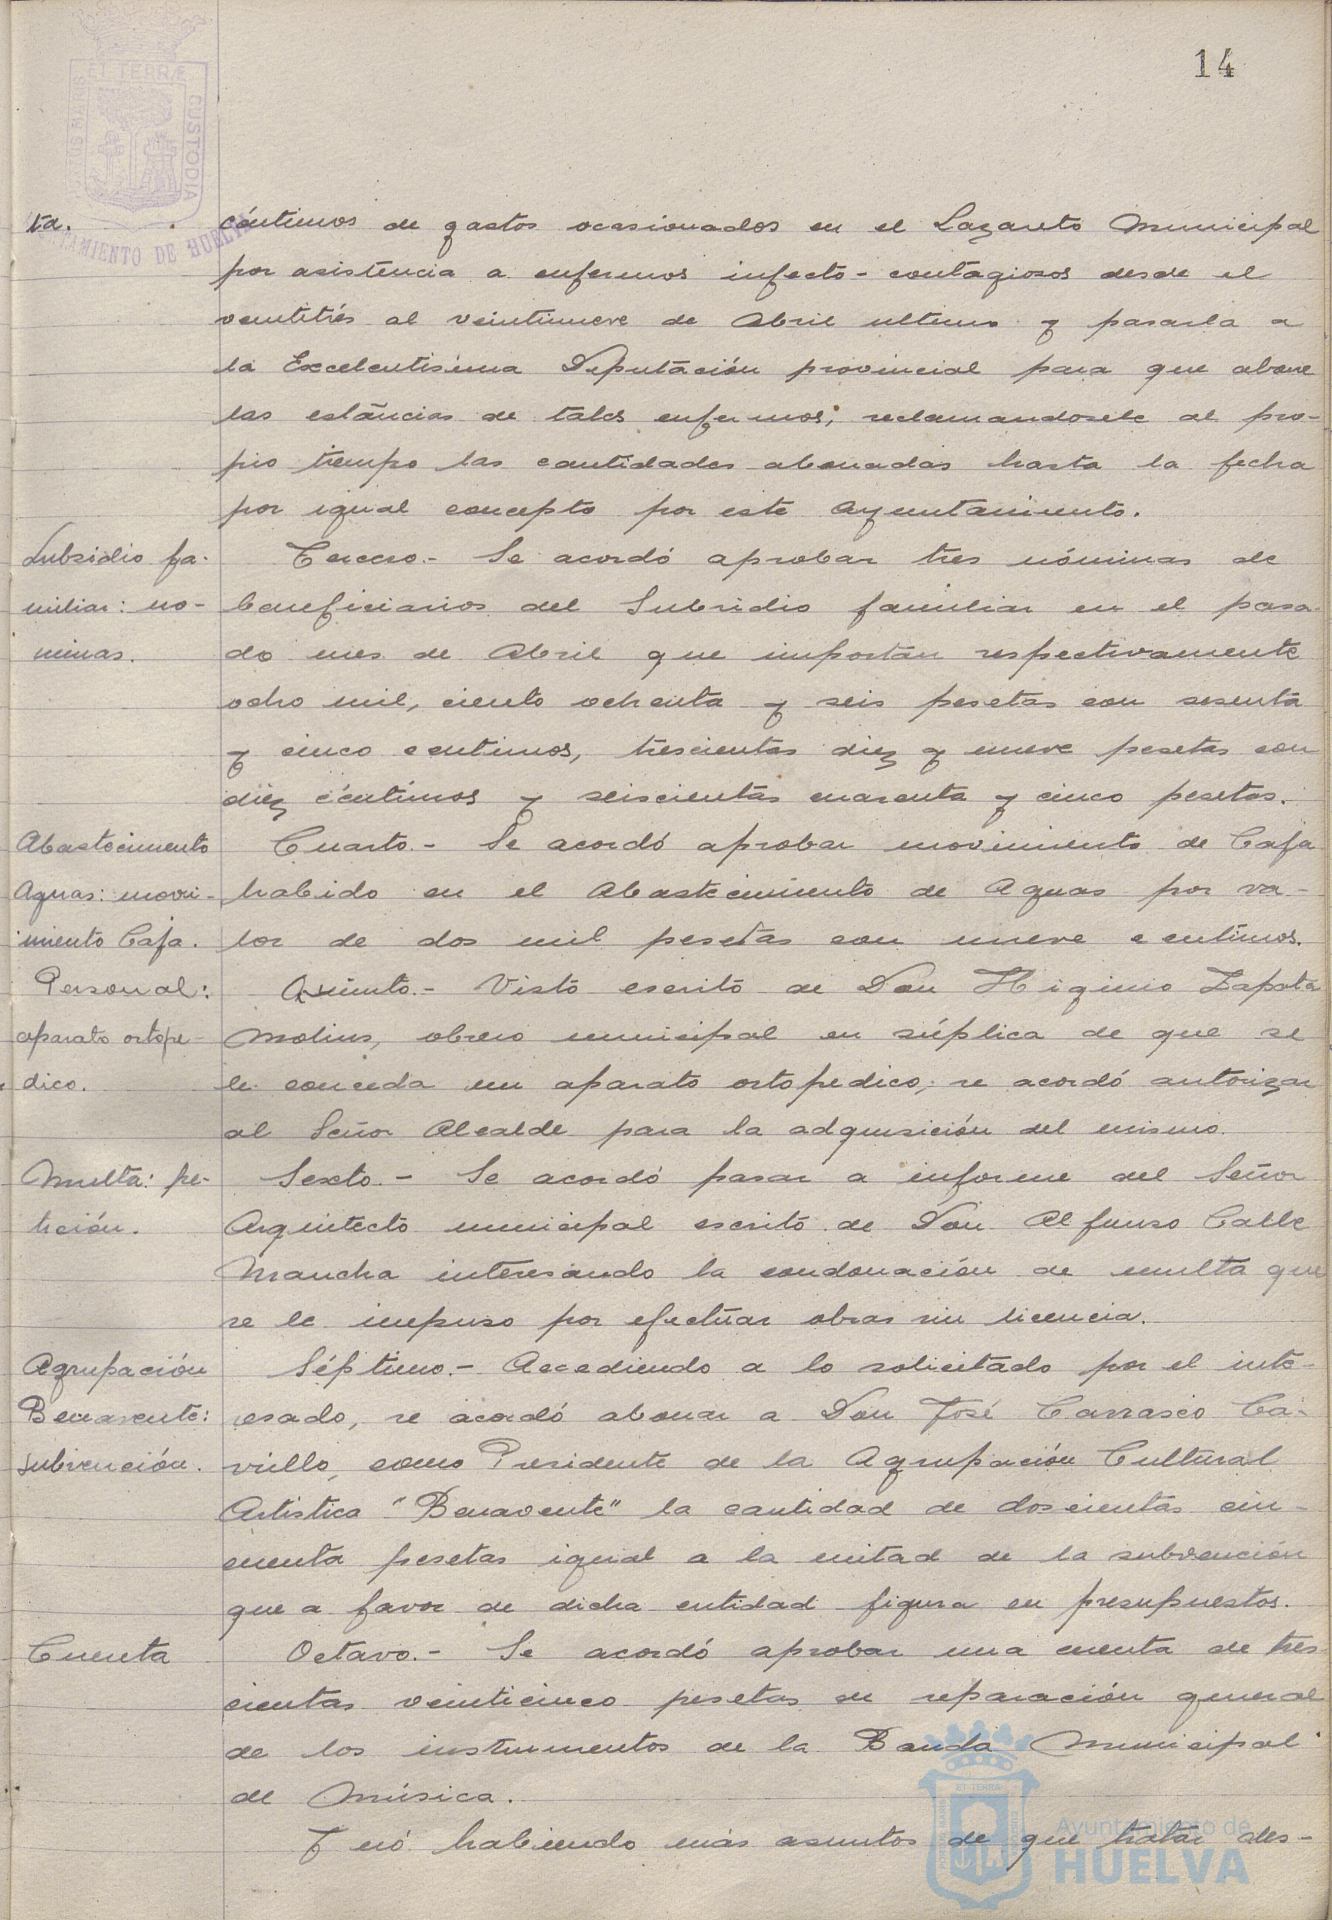 14
PORTUS MARIS ET TERRÆ CUSTODIA
AYUNTAMIENTO DE HUELVA
ta.
céntimos de gastos ocasionados en el Lazareto Municipal
por asistencia a enfermos infecto-contagiosos desde el
veintitrés al veintinueve de Abril ultimo y pasarla a
la Excelentisima Diputación provincial para que abone
las estancias de tales enfermos; reclamandosele al pro-
pio tiempo las cantidades abonadas hasta la fecha
por igual concepto por este Ayuntamiento.
Subsidio fa-
miliar: no-
minas.
Tercero.- Se acordó aprobar tres nóminas de
beneficiarios del Subsidio familiar en el pasa-
do mes de Abril que importan respectivamente
ocho mil, ciento ochenta y seis pesetas con sesenta
y cinco centimos, trescientas diez y nueve pesetas con
diez céntimos y seiscientas cuarenta y cinco pesetas.
Abastecimiento
Aguas: movi-
miento Caja.
Cuarto.- Se acordó aprobar movimiento de Caja
habido en el Abastecimiento de Aguas por va-
lor de dos mil pesetas con nueve centimos.
Personal:
aparato ortope-
dico.
Quinto.- Visto escrito de Don Higinio Zapata
Molins, obrero municipal en súplica de que se
le conceda un aparato ortopedico; se acordó autorizar
al Señor Alcalde para la adquisición del mismo.
Multa: pe-
tición.
Sexto.- Se acordó pasar a informe del Señor
Arquitecto municipal escrito de Don Alfonso Calle
Mancha interesando la condonación de multa que
se le impuso por efectuar obras sin licencia.
Agrupación
Benavente:
subvención.
Séptimo.- Accediendo a lo solicitado por el inte-
resado, se acordó abonar a Don José Carrasco Ca-
rrillo, como Presidente de la Agrupación Cultural
Artistica "Benavente" la cantidad de doscientas cin-
cuenta pesetas igual a la mitad de la subvención
que a favor de dicha entidad figura en presupuestos.
Cuenta
Octavo.- Se acordó aprobar una cuenta de tres-
cientas veinticinco pesetas en reparación general
de los instrumentos de la Banda Municipal
de Música.
Y nó habiendo más asuntos de que tratar des-
Ayuntamiento de
HUELVA